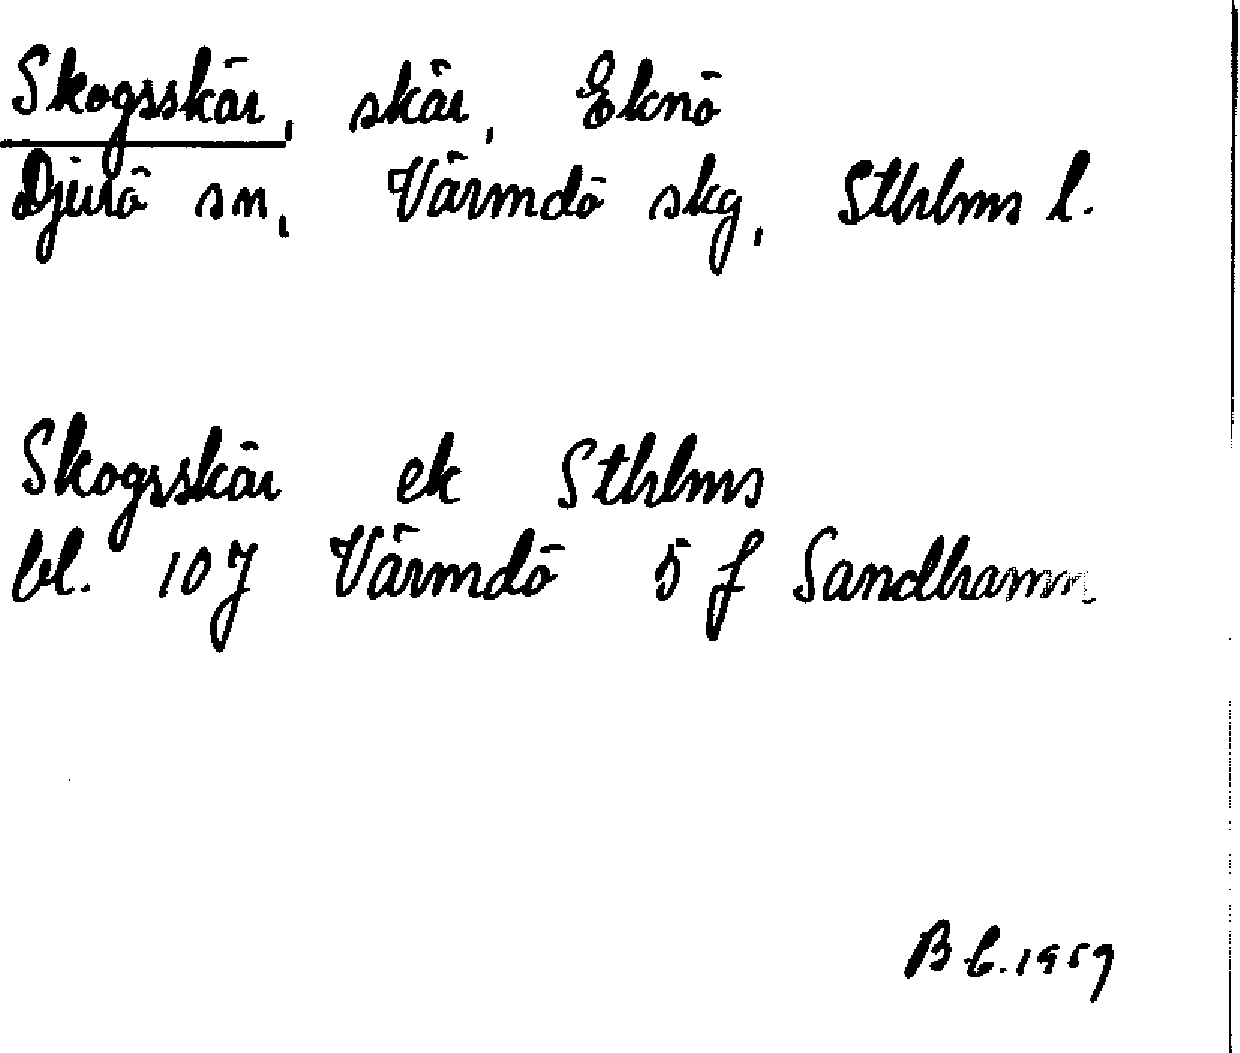 Skogsskär, skär, Eknö
Djurö sn, Värmdö skg, Sthlms l.
Skogsskär ek Sthlms
bl. 10 J Värmdö 5 f Sandhamn
B 1959